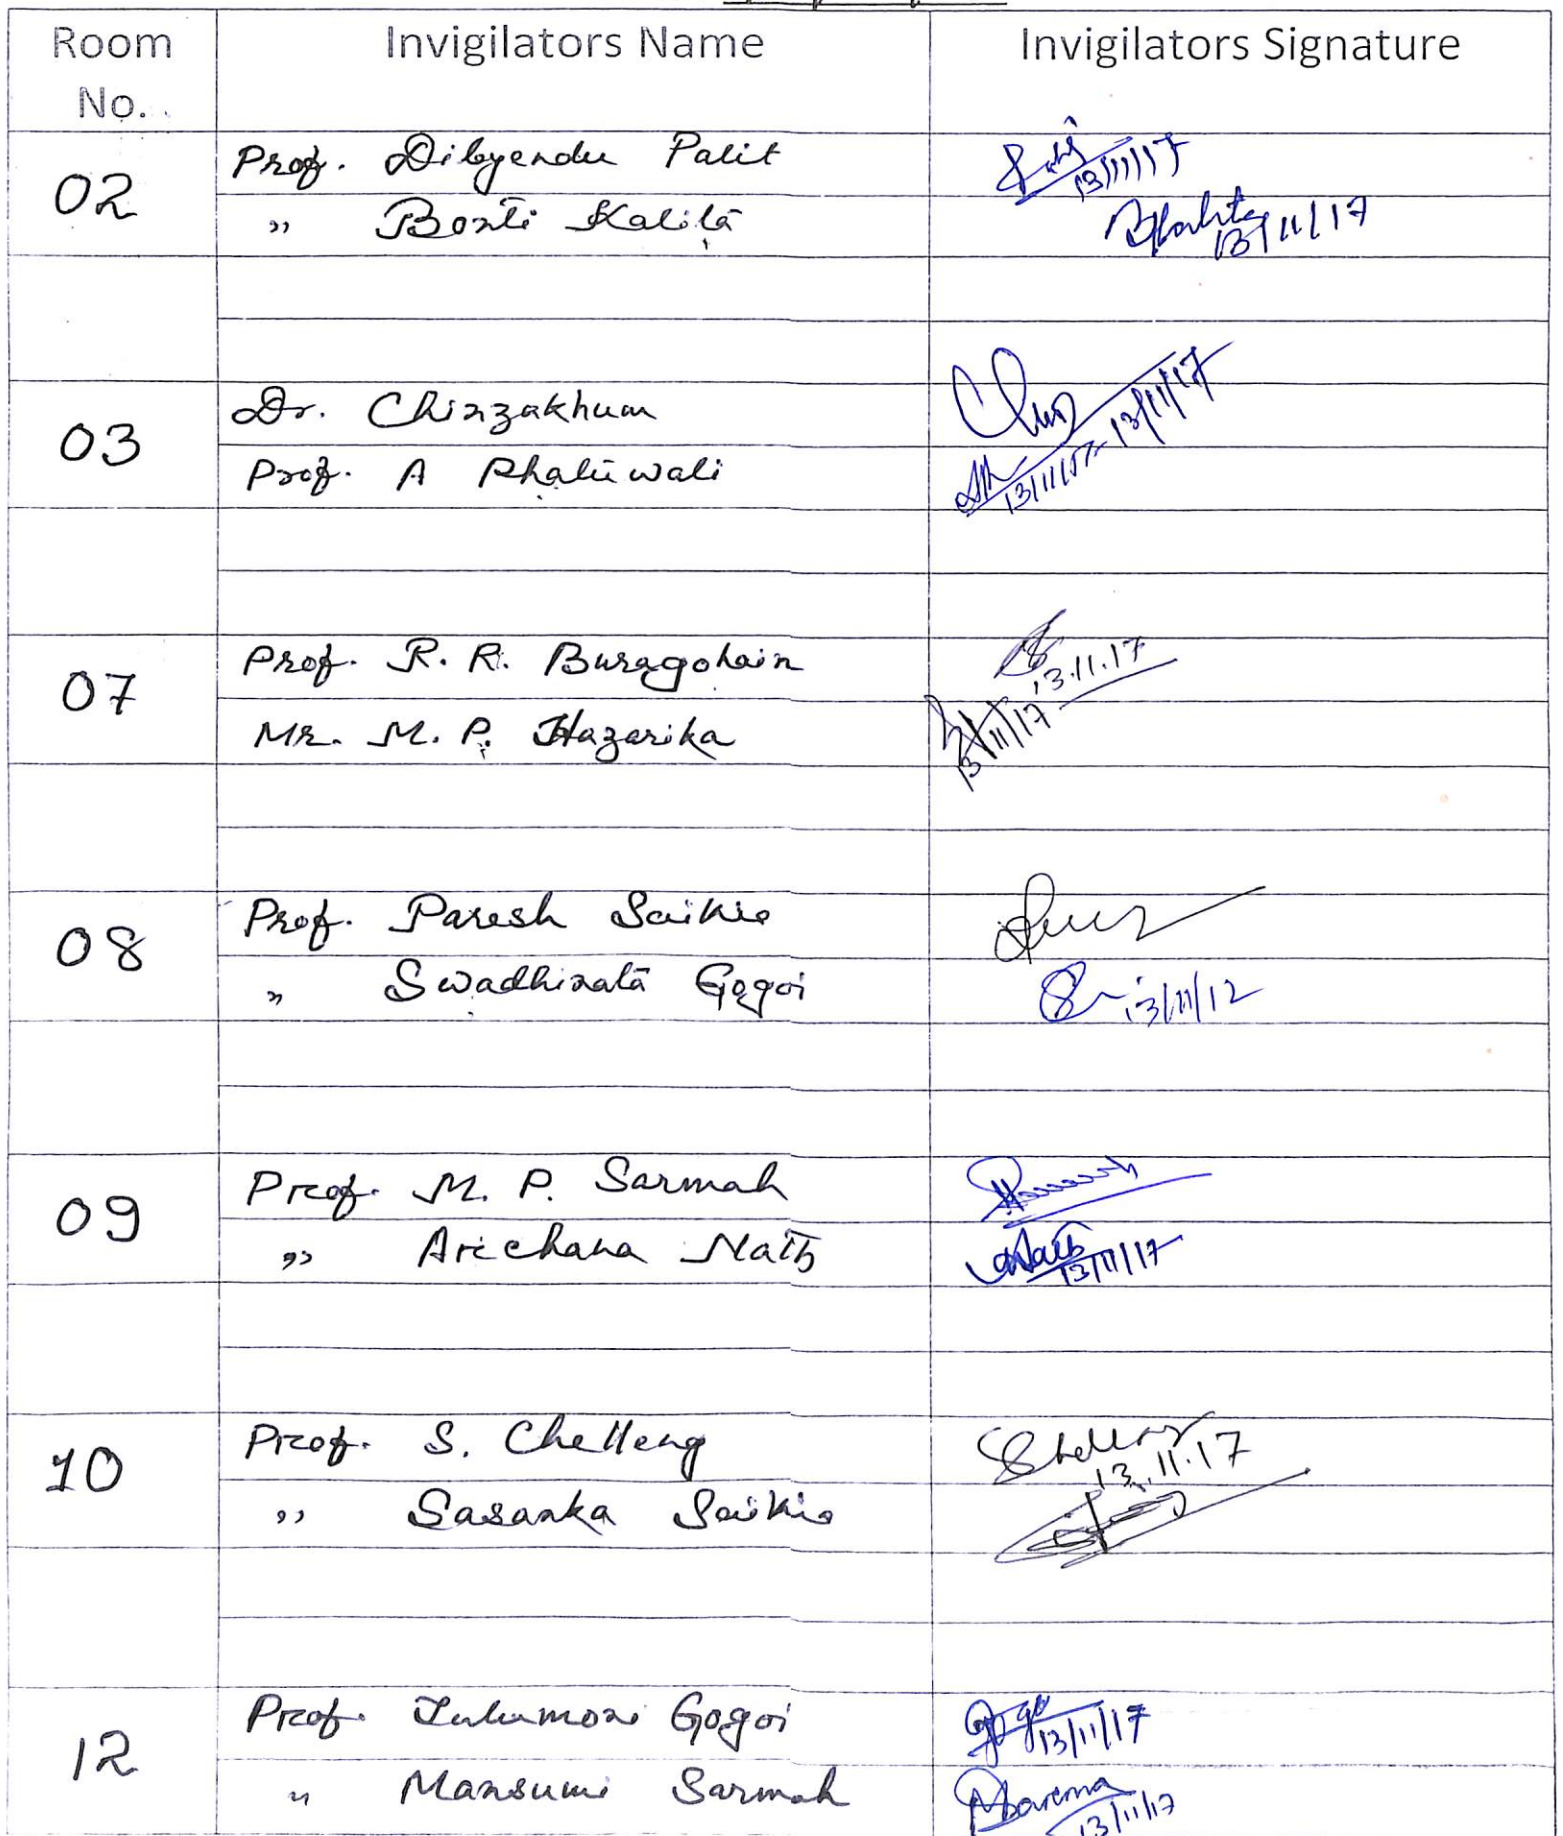 Room No. Invigilators Name Invigilators Signature
02 Prof. Dibyendu Palit 13/11/17
" Bonti Kalita 13/11/17
03 Dr. Chinzakhum 13/11/17
Prof. A Phatuwali 13/11/17
07 Prof. R. R. Buragohain 13.11.17
Mr. M. P. Hazarika 13/11/17
08 Prof. Paresh Saikia
" Swadhinata Gogoi 13/11/12
09 Prof. M. P. Sarmah
" Archana Nath Nath 13/11/17
10 Prof. S. Chelleng Schelleng 13.11.17
" Sasanka Saikia
12 Prof. Gogoi 13/11/17
" Mansumi Sarmah 13/11/17